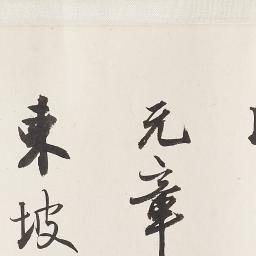 元章
東坡